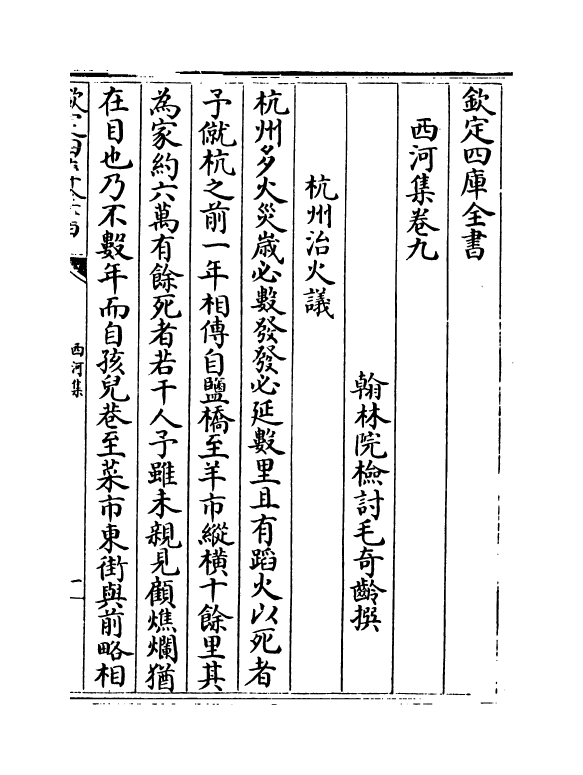 欽定四庫全書
西河集卷九
翰林院檢討毛奇齡撰
杭州治火議
杭州多火災歲必數發發必延數里且有蹈火以死者
予僦杭之前一年相傳自鹽橋至羊市縱横十餘里其
為家約六萬有餘死者若干人予雖未親見顧燋爛猶
在目也乃不數年而自孩兒巷至菜市東街與前略相
欽定四庫全書
西河集
一